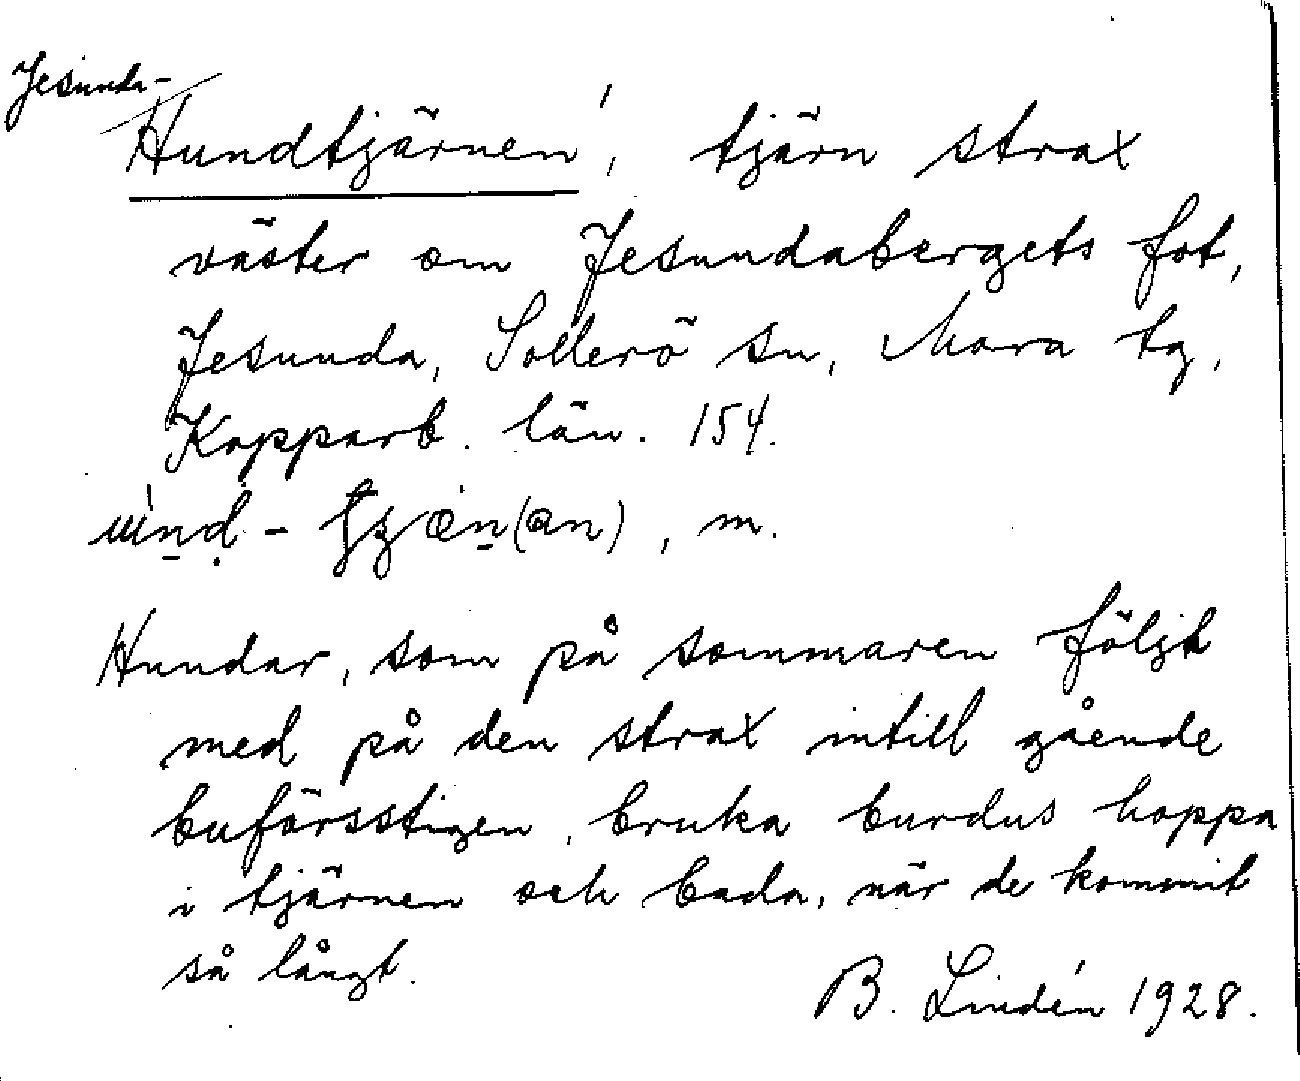 Jesunda-
Hundtjärnen, tjärn strax
väster om Jesundabergets fot,
Jesunda, Sollerö sn, Mora tg,
Kopparb. län. 154.
m.
Hundar, som på sommaren följt
med på den strax intill gående
bufärsstigen, bruka burdus hoppa
i tjärnen och bada, när de kommit
så långt.
B. Lindén 1928.